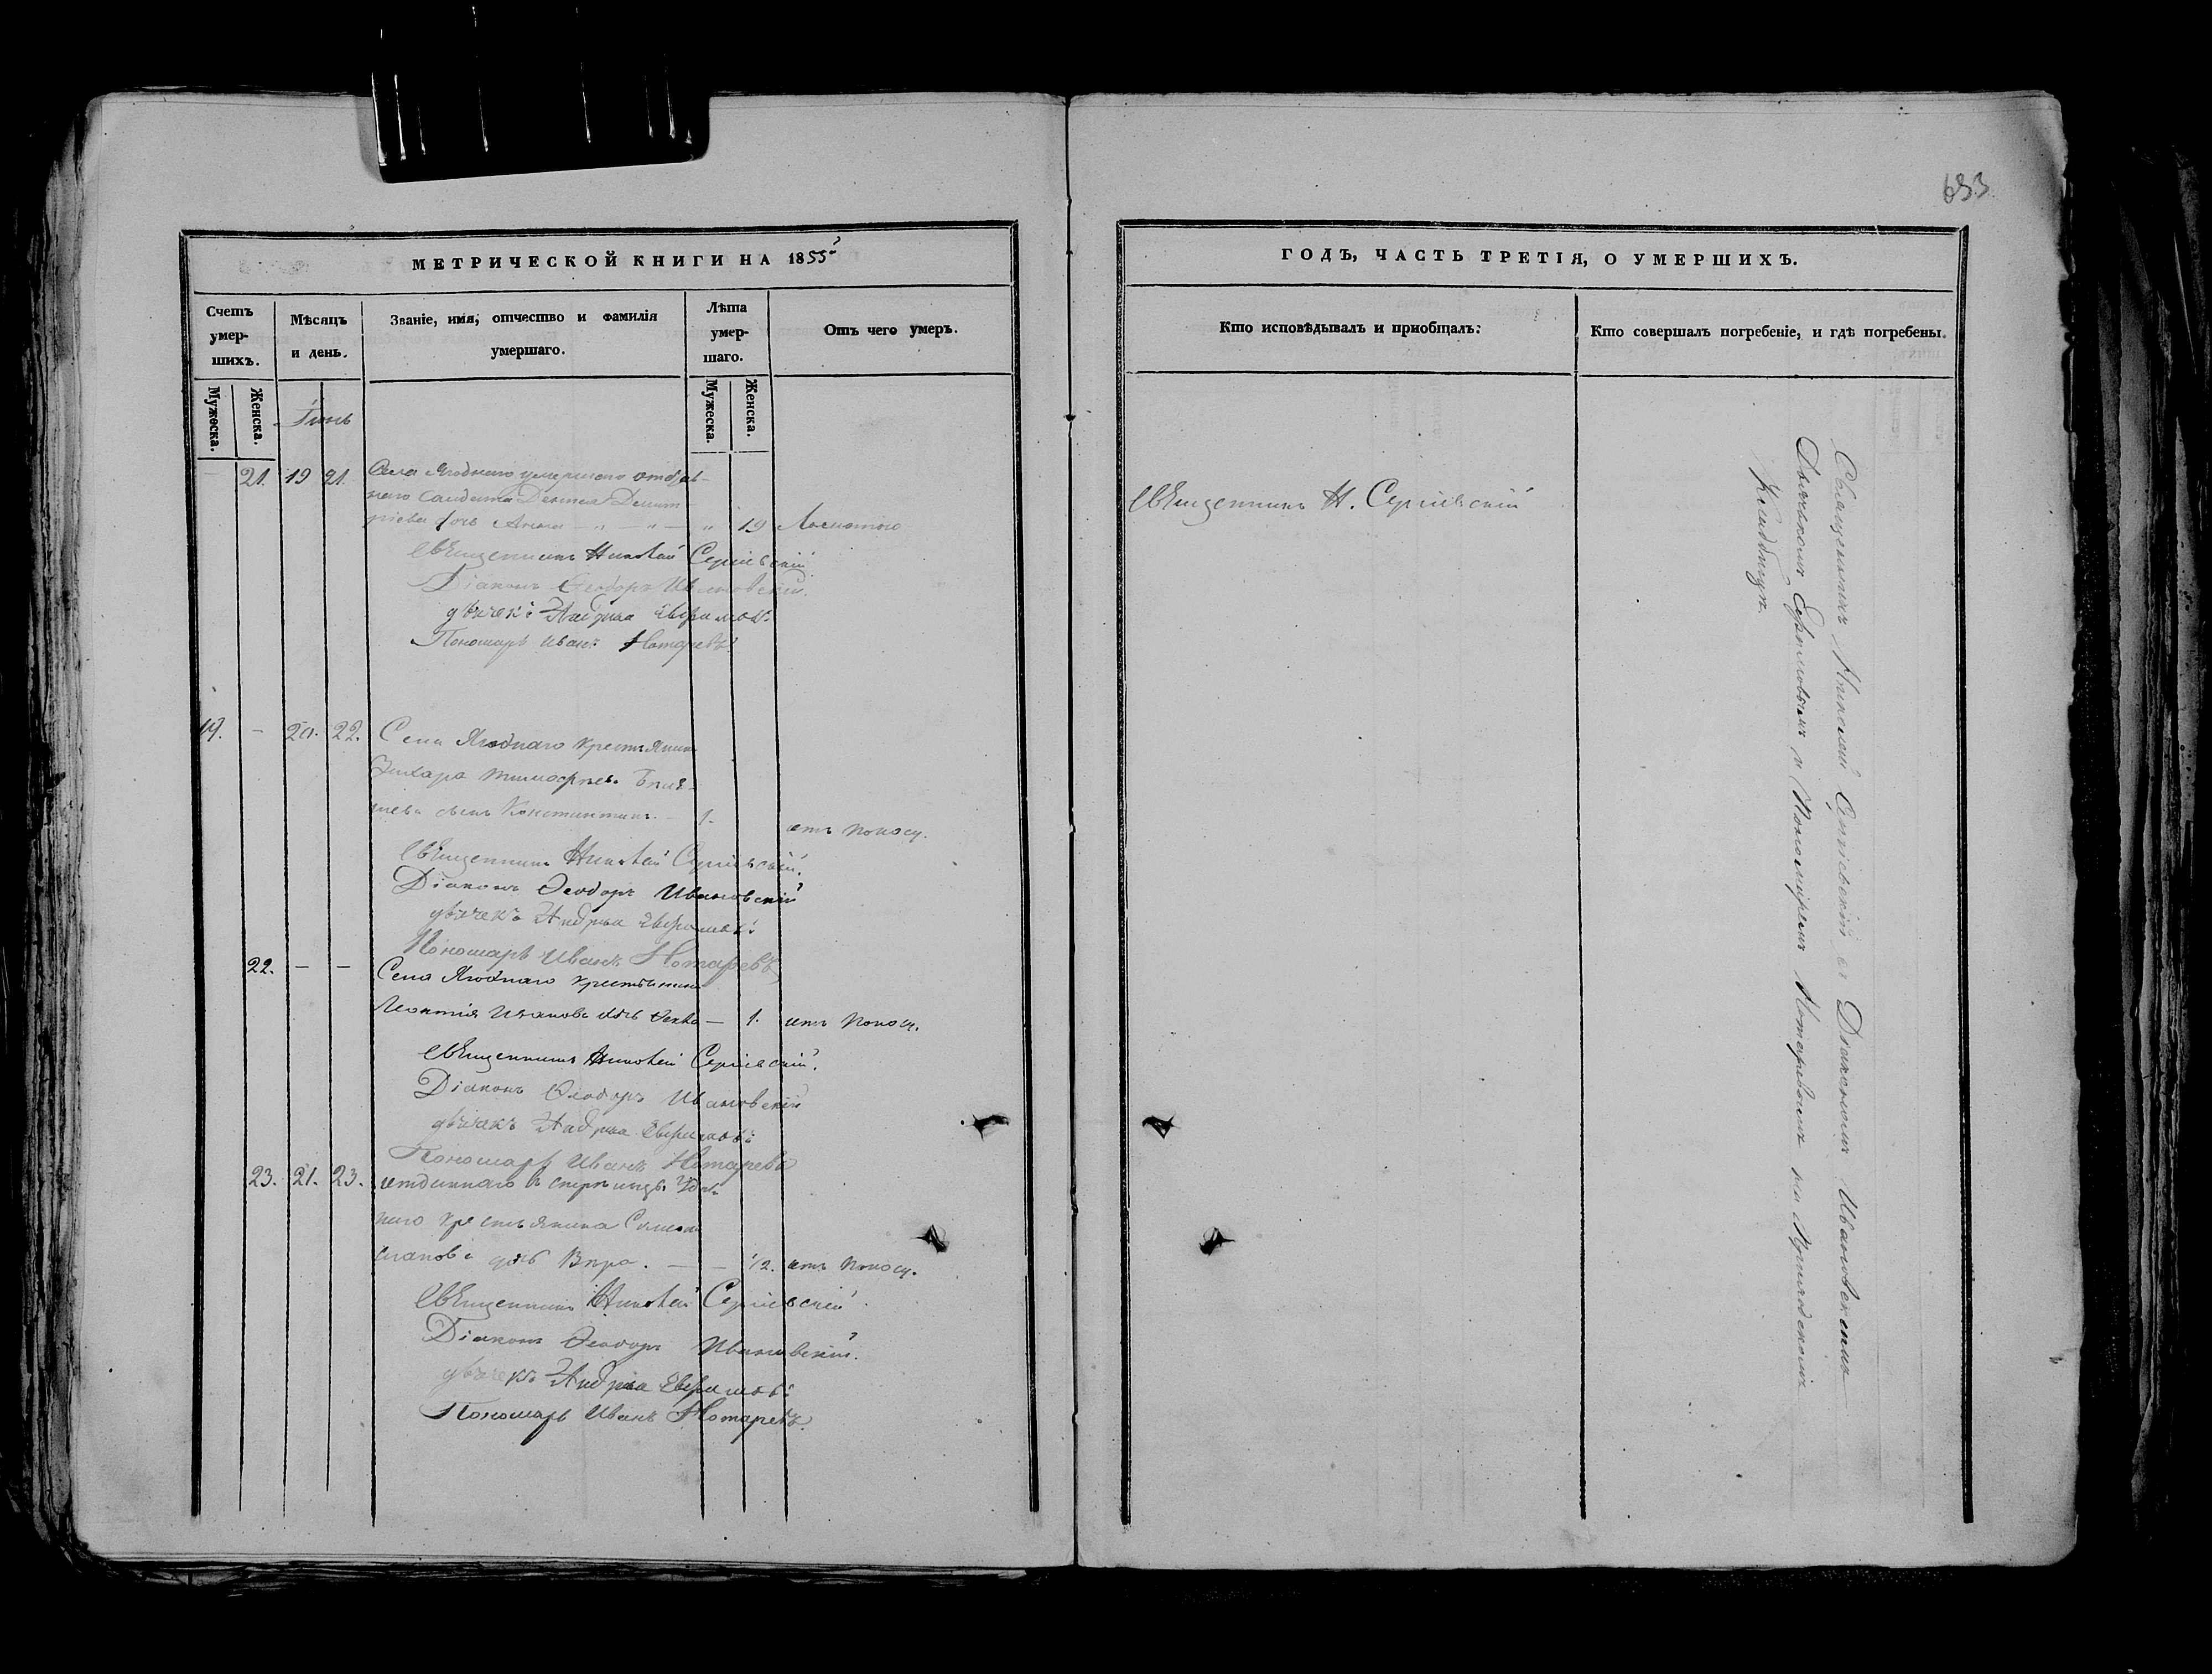 653
МЕТРИЧЕСКОЙ КНИГИ НА 1855й
Счетъ умершихъ.
Мѣсяцъ и день.
Званіе, имя, отчество и фамилія умершаго.
Лѣта умершаго.
Отъ чего умеръ.
Мужеска.
Женска.
Мужеска.
Женска.
Іюнь
21. 19 21. Села Ягоднаго умершаго
солдата Дмит-
ріева дочь 19
Священникъ Николай Сергіевскій
Діаконъ Ѳеодоръ Ивановскій.
дьячекъ Андрей
Пономарь Иванъ Нотаревъ
19. – 20. 22. Села Ягоднаго крестьянина
Захара Тимофѣева
сынъ Константинъ. 1. отъ поносу.
Священникъ Николай Сергіевскій.
Діаконъ Ѳеодоръ Ивановскій
дьячекъ Андрей
Пономарь Иванъ Нотаревъ
22. – – Села Ягоднаго крестьянина
Леонтія Иванова дочь – 1. отъ поносу.
Священникъ Николай Сергіевскій.
Діаконъ Ѳеодоръ Ивановскій
дьячекъ Андрей
Пономарь Иванъ Нотаревъ
23. 21. 23.
наго крестьянина
дочь Вѣра. – – 1/2. отъ поносу.
Священникъ Николай Сергіевскій
Діаконъ Ѳеодоръ Ивановскій.
дьячекъ Андрей
Пономарь Иванъ Нотаревъ
ГОДЪ, ЧАСТЬ ТРЕТІЯ, О УМЕРШИХЪ.
Кто исповѣдывалъ и пріобщалъ:
Кто совершалъ погребеніе, и гдѣ погребены.
Священникъ Н. Сергіевскій
Священникъ Николай Сергіевскій съ Діакономъ Ивановскимъ
Дьячкомъ и Пономаремъ Нотаревымъ на Приходскомъ
Кладбищѣ.